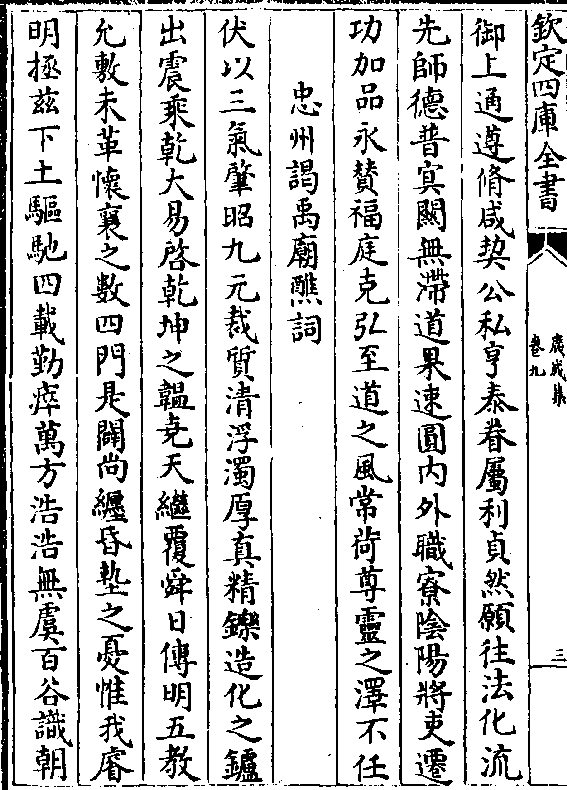 欽定四庫全書
廣成集
卷九
三
御上通遵脩咸契公私亨泰眷屬利貞然願往法化流
先師德普㝠闕無滯道果速圓内外職寮隂陽將吏遷
功加品永贊福庭克弘至道之風常荷尊靈之澤不任
忠州謁禹廟醮詞
伏以三氣肇昭九元裁質清浮濁厚真精鑠造化之鑪
出震乘乾大易啓乾坤之韞堯天繼覆舜日傳明五教
允敷未革懷襄之數四門是闢尚纒昏墊之憂惟我睿
明拯兹下土驅馳四載勤瘁萬方浩浩無虞百谷識朝